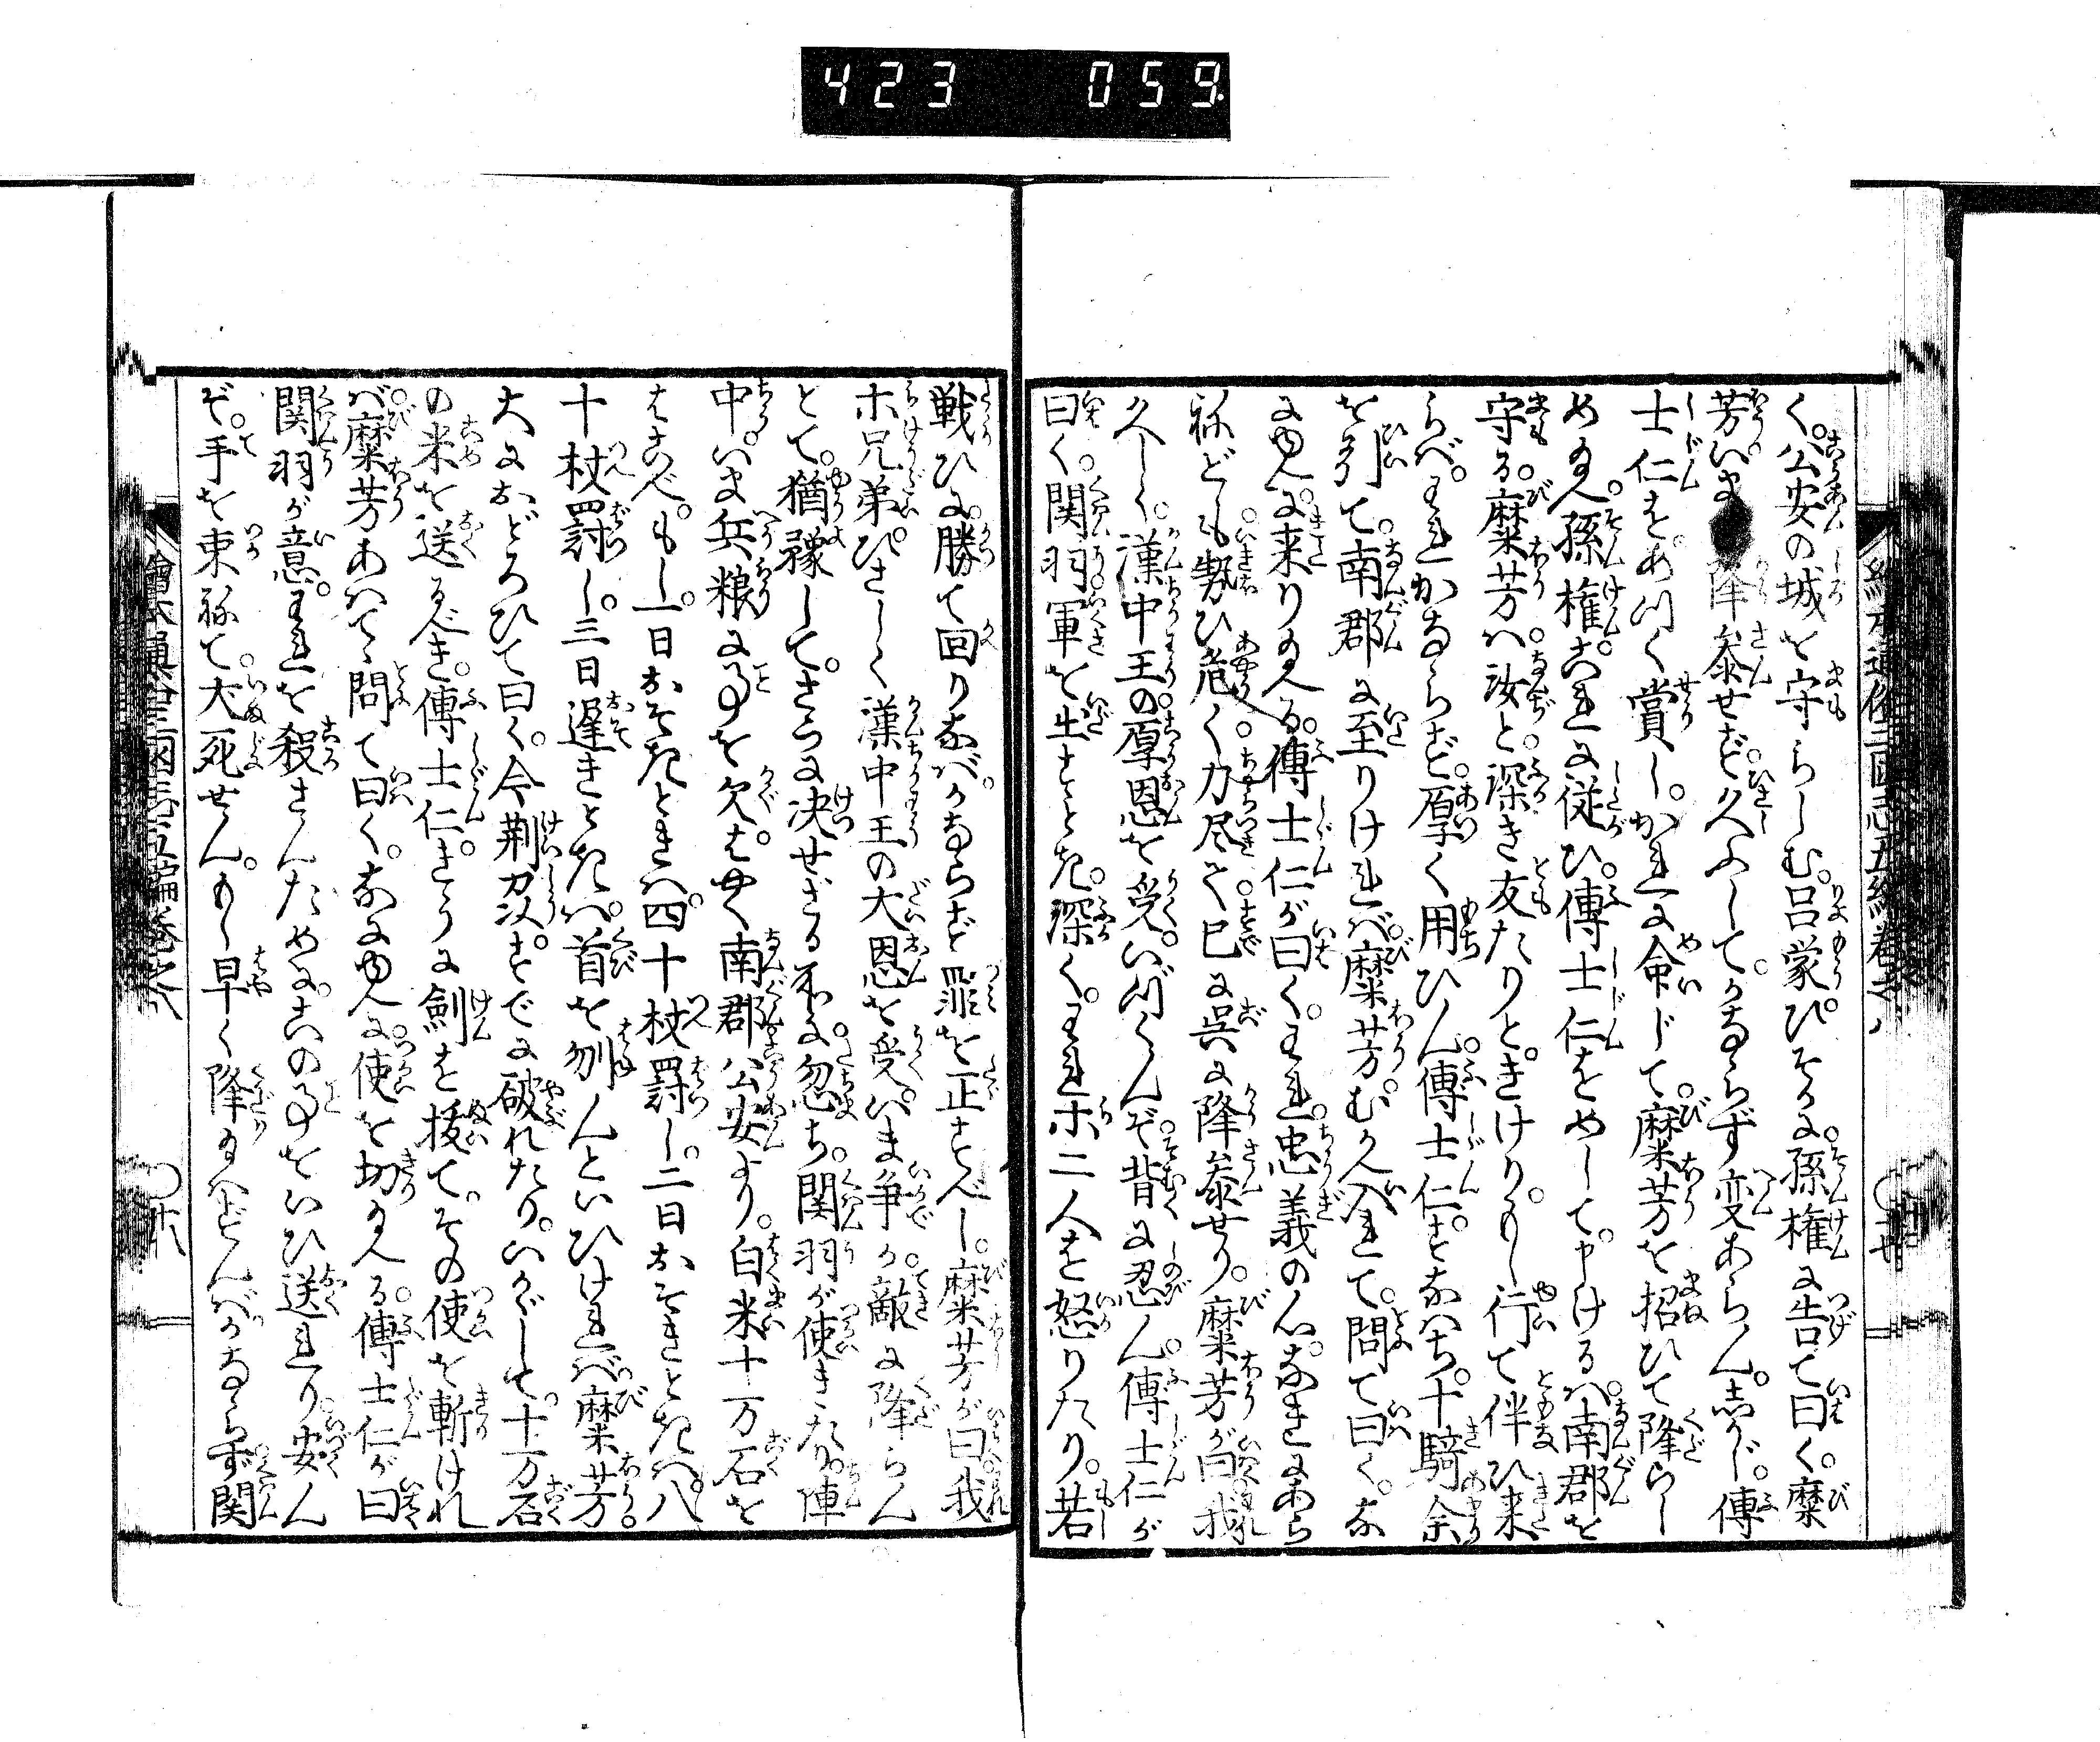 423 059
く。公安の城を守らしむ。呂蒙ひそかに。孫権に告て曰く。糜
芳いま降参せず。久ふして。かならず変あらん。しかじ。傅
士仁をあつく賞し。かれに命じて。糜芳を招ひて降らし
め玉へ。孫権。これに従ひ。傅士仁をめして。申けるハ。南郡を
守る。糜芳ハ。汝と。深き友たりと。きけり。もし行て伴ひ来
らバ。われかならず。厚く用ひん。傅士仁。すなハち。十騎余
を引て。南郡に至りけれバ。糜芳。むかへ入れて。問て曰く。な
にゆへに来り玉へる。傅士仁が曰く。われ。忠義の心。なきにあら
ねども。勢ひ危く。力尽て。已に呉に降参せり。糜芳が曰。我
久しく。漢中王の。厚恩を受。いづくんぞ。背に忍ん。傅士仁が
曰く。関羽。軍を出すとき。深く。われホ二人を怒りたり。若
戦ひに。勝て回りなバ。かならず罪を正すべし。糜芳が曰。我
ホ兄弟。ひさしく漢中王の大恩を受。いま争か。敵に降らん
とて。猶豫して。さらに决せざる所に。忽ち。関羽が使きたり。陣
中。いま兵粮に事を欠。はやく南郡公安より。白米十万石を
はこべ。もし一日おそきときハ。四十杖罸し。二日おそきときハ。八
十杖罸し。三日遅きときハ。首を刎んといひけれバ。糜芳。
大におどろひて曰く。今荆刕。すでに破れたり。いかゞして。十万石
の米を送るべき。傅士仁。きうに剣を抜て。その使を斬けれ
バ。糜芳あハてゝ問て曰く。なにゆへに。使を切玉へる。傅士仁が曰
関羽が意。われを殺さんために。此の事をいひ送れり。安ん
ぞ。手を束ねて。犬死せん。もし早く降玉ハずんバ。かならず関
繪本通俗三國志五編巻之八